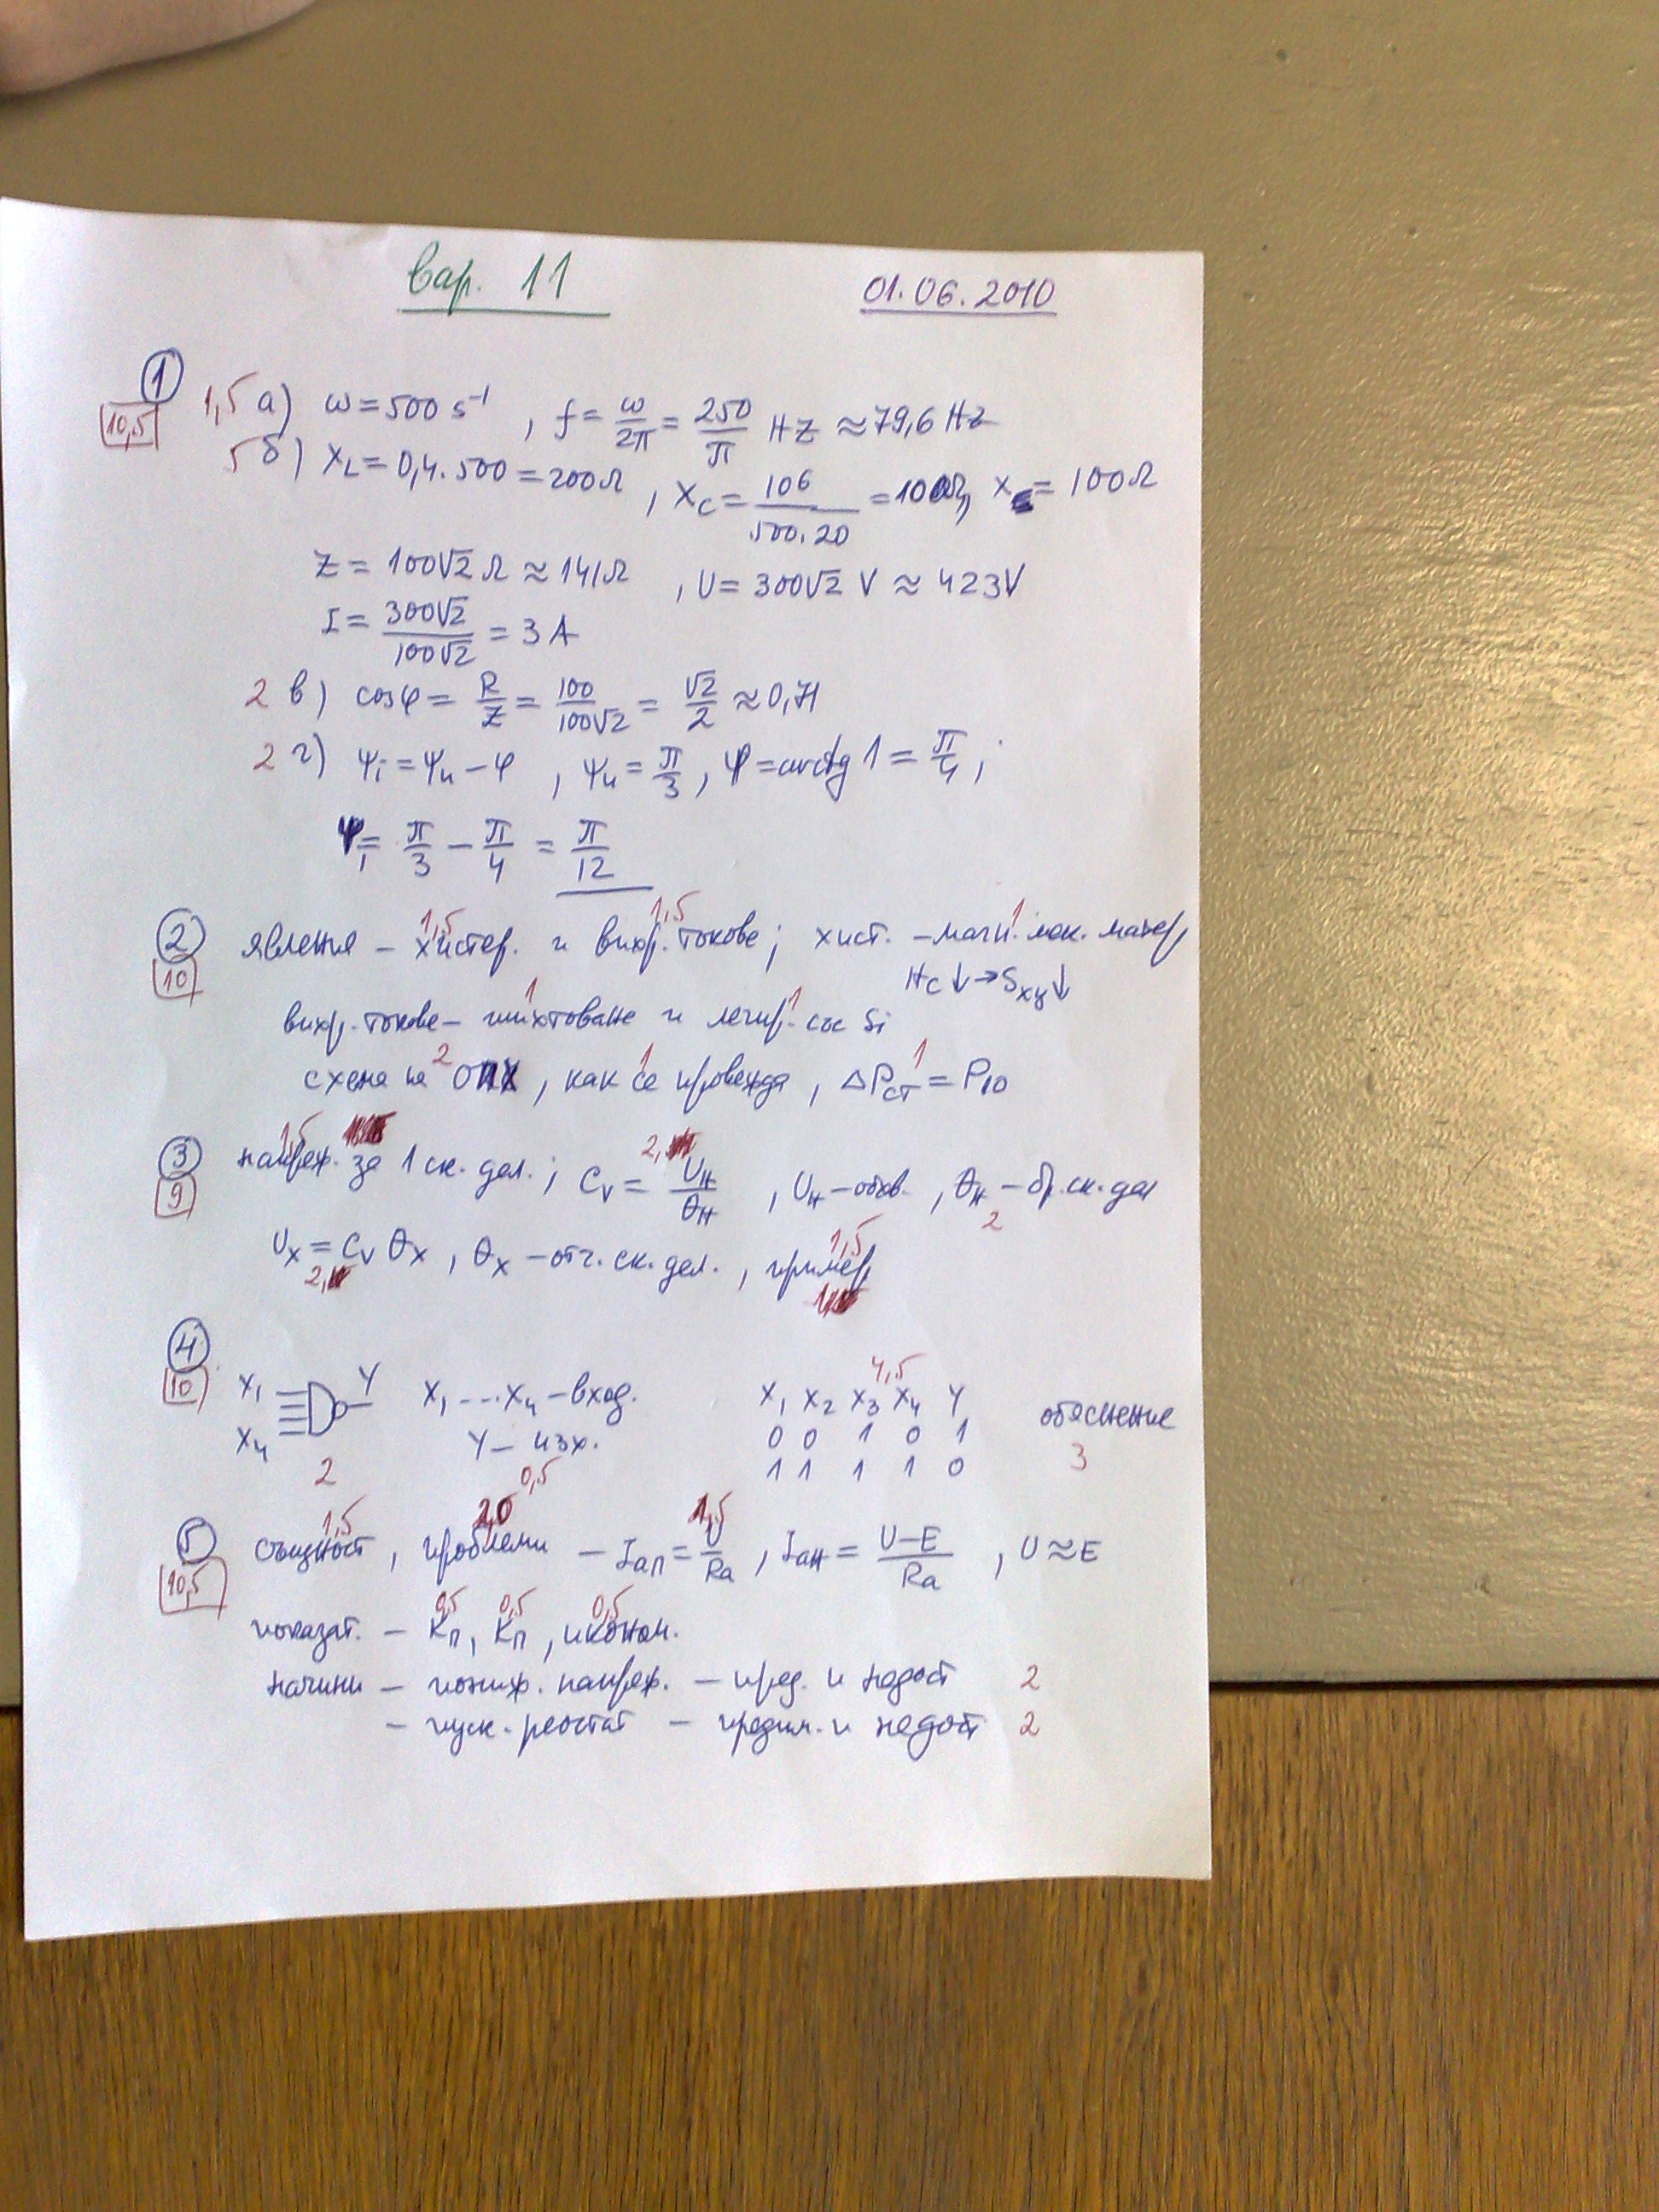 Вар. 11 01.06.2010
1
10,5 1,5 а) ω=500 s⁻¹ , f= ω/2π = 250/π HZ ≈79,6 Hz
5 б) XL=0,4.500=200Ω , XC= 106/500.20 =100Ω, X = 100Ω
Z= 100√2 Ω ≈ 141Ω , U= 300√2 V ≈ 423V
I= 300√2/100√2 = 3 A
2 в) cosφ= R/Z = 100/100√2 = √2/2 ≈0,71
2 г) Ψi=Ψu-φ , Ψu= π/3 , φ=arctg 1= π/4 ;
Ψi= π/3 - π/4 = π/12
2 явления - 1,5 хистер. и 1,5 вихр. токове; хист. - 1 магн. мек. матер.
10 Hc↓→Sxy↓
вихр. токове- 1 шихтоване и 1 легир. със Si
схема на 2 ОПХ, как 1 се провежда, 1 ΔPст=P10
3 1,5 напреж. за 1 ск. дел.; 2, Cv= Uн/θн , Uн-обхв. , θн-бр. ск. дел
9 2
Ux=Cv θx , θx-отч. ск. дел. , 1,5 пример
2,
4
10 X1 Y X1---X4-вход. 4,5 X1 X2 X3 X4 Y обяснение
X4 Y- изх. 0 0 1 0 1 3
2 0,5 1 1 1 1 0
5 1,5 същност, 2,0 проблеми - 1,5 Iап= U/Ra , Iан= U-E/Ra , U≈E
10,5
показат. - 0,5 Kп, 0,5 Kп, 0,5 иконом.
начини - пониж. напреж. - пред. и недост 2
- пуск. реостат - предим. и недост 2